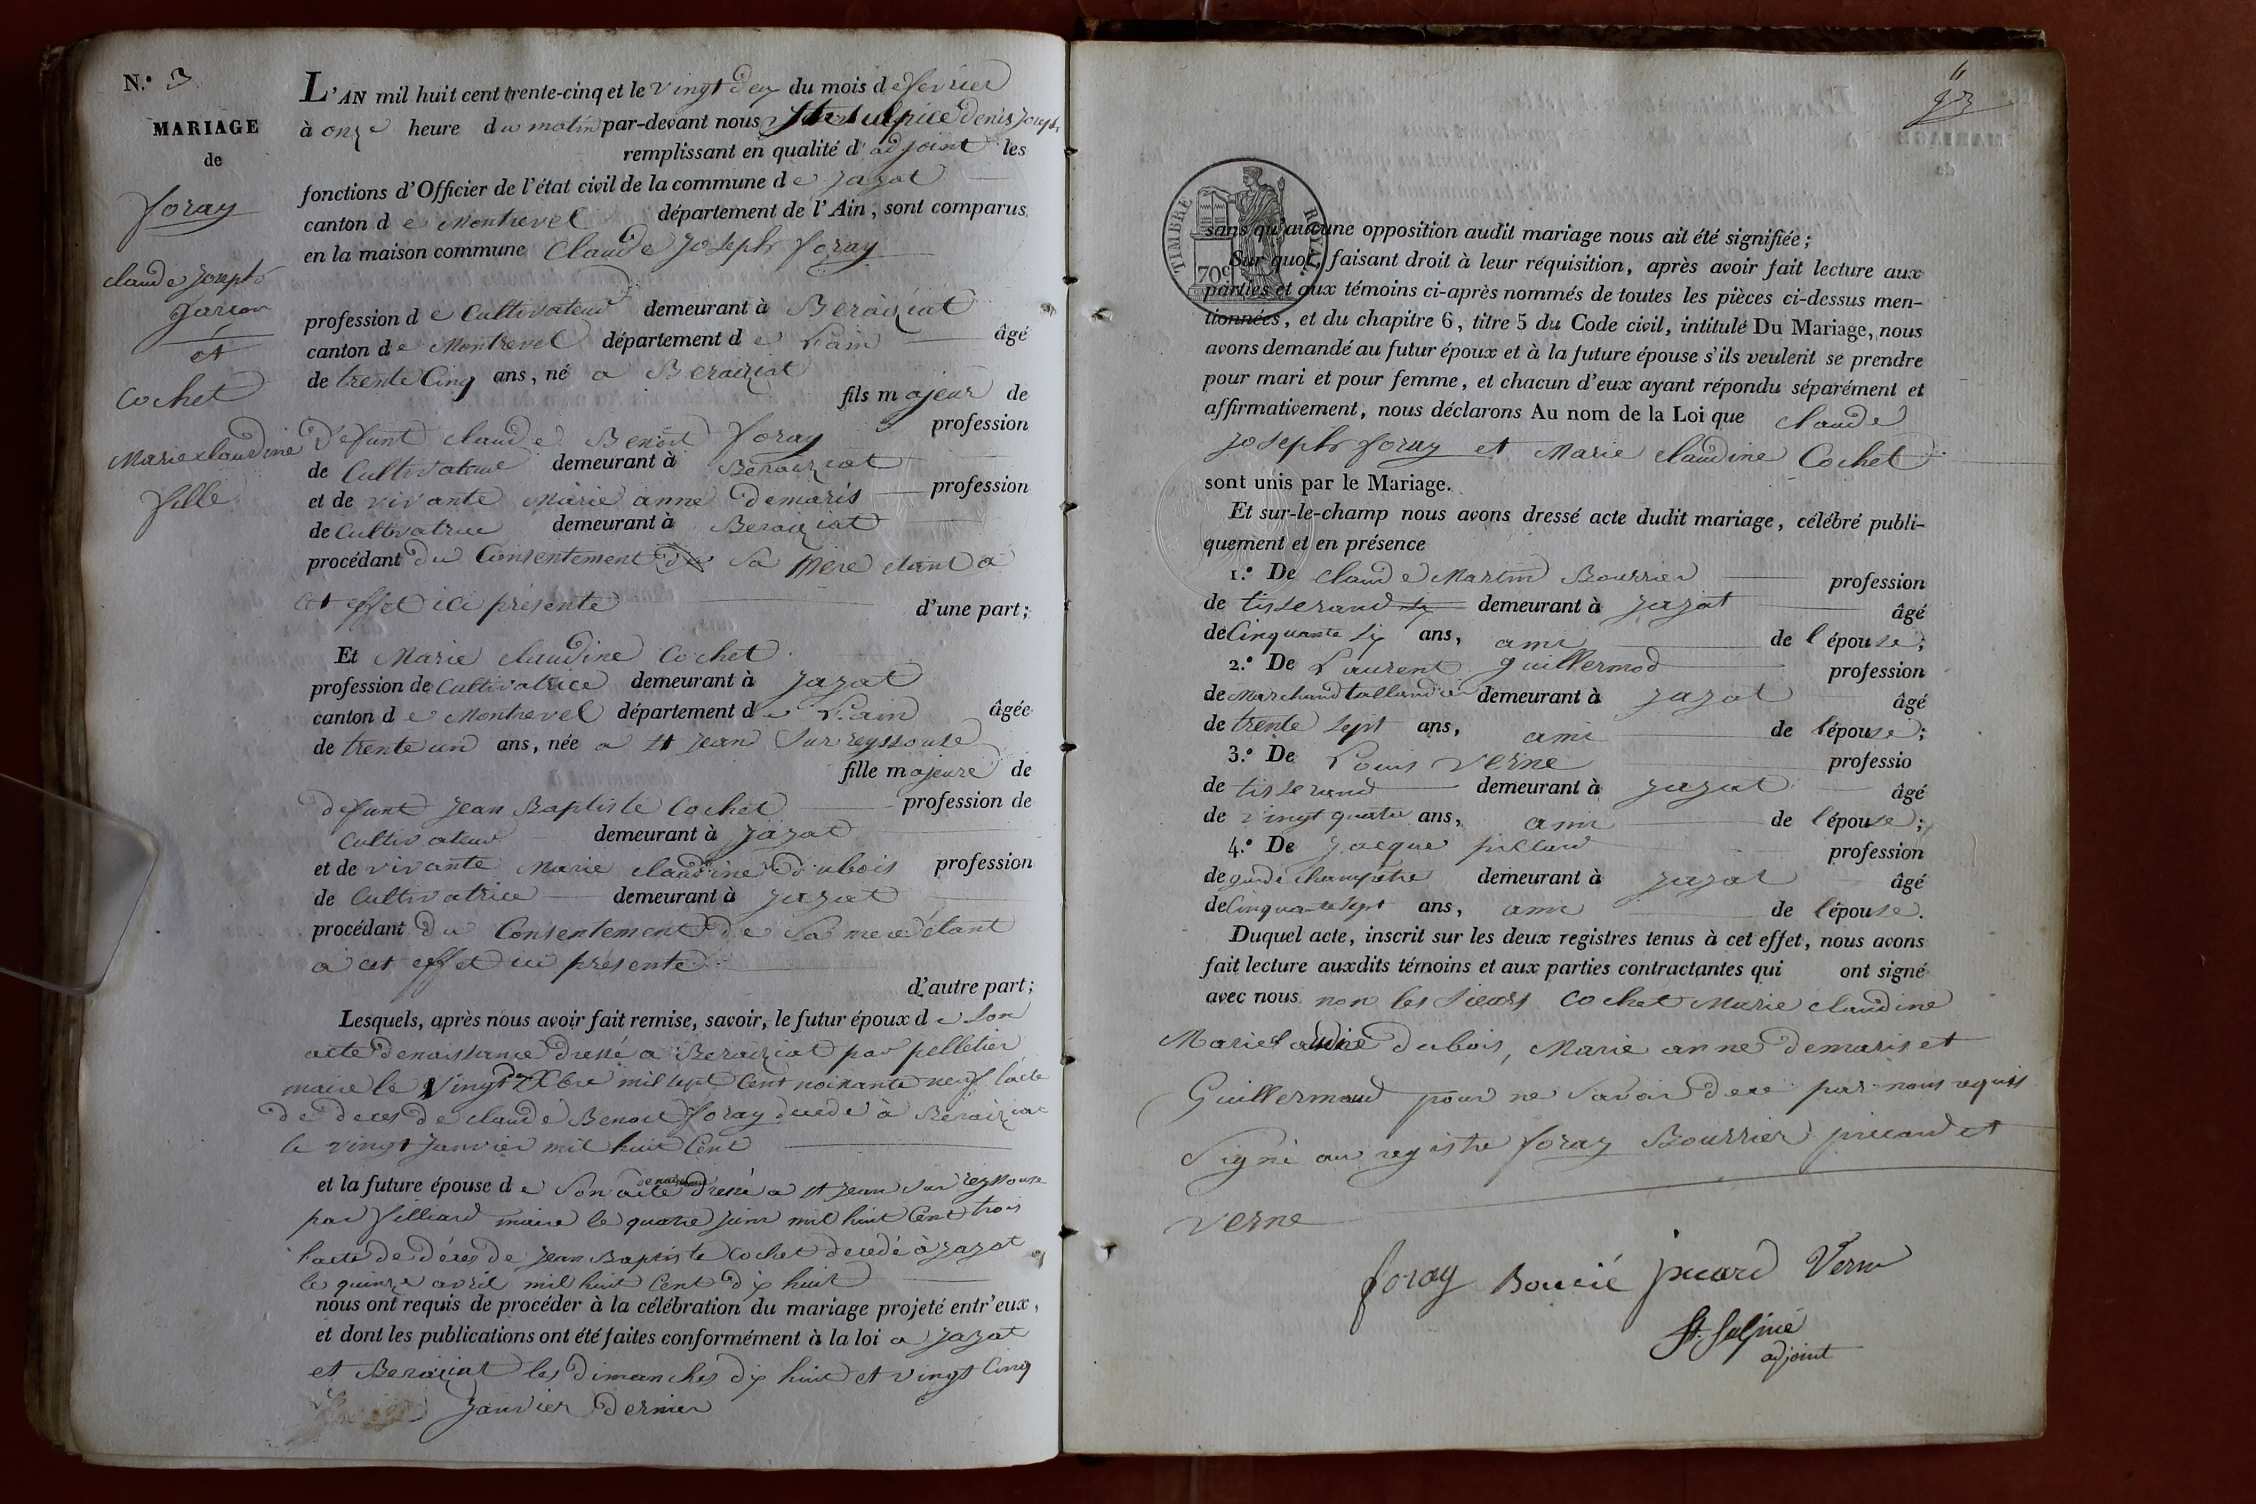 N.º 3
MARIAGE
de
foray
claude Joseph
garcon
et
Cochet
Marie claudine
fille
L'AN mil huit cent trente-cinq et le vingt deux du mois de fevrier
à onze heure du matin par-devant nous St Sulpice denis Joseph
remplissant en qualité d'adjoint les
fonctions d'Officier de l'état civil de la commune de Jayat
canton de Montrevel département de l'Ain, sont comparus
en la maison commune Claude Joseph foray
profession de Cultivateur demeurant à Beraiziat
canton de Montrevel département de L'ain âgé
de trente Cinq ans, né a Beraiziat
fils majeur de
profession
defunt claude Benoit foray
de Cultivateur demeurant à Beraiziat
et de vivante Marie anne demaris profession
de Cultivatrice demeurant à Beraiziat
procédant du Consentement de sa Mere etant a
cet effet ici présente d'une part;
Et Marie claudine Cochet
profession de Cultivatrice demeurant à Jayat
canton de Montrevel département de L'ain âgée
de trente un ans, née a st jean Sur reyssouse
fille majeure de
defunt Jean Baptiste Cochet profession de
Cultivateur demeurant à Jayat
et de vivante Marie claudine dubois profession
de Cultivatrice demeurant à Jayat
procédant du Consentement de Sa mere étant
a cet effet ici présente
d'autre part;
Lesquels, après nous avoir fait remise, savoir, le futur époux de Son
acte de naissance dressé a Beraiziat par pelletier
maire le vingt Xbre mil sept Cent noinante neuf l'acte
de deces de claude Benoit foray decede à Beraiziat
le vingt Janvier mil huit Cent
et la future épouse de Son acte de naissance dressé a st Jean Sur reyssouse
par filliard maire le quatre juin mil huit Cent trois
l'acte de déces de Jean Baptiste Cochet decedé à Jayat
le quinze avril mil huit Cent dix huit
nous ont requis de procéder à la célébration du mariage projeté entr'eux,
et dont les publications ont été faites conformément à la loi a Jayat
et Beraiziat les Dimanches dix huit et vingt Cinq
Janvier dernier
TIMBRE ROYAL
70c
sans qu'aucune opposition audit mariage nous ait été signifiée;
Sur quoi, faisant droit à leur réquisition, après avoir fait lecture aux
parties et aux témoins ci-après nommés de toutes les pièces ci-dessus men-
tionnées, et du chapitre 6, titre 5 du Code civil, intitulé Du Mariage, nous
avons demandé au futur époux et à la future épouse s'ils veulent se prendre
pour mari et pour femme, et chacun d'eux ayant répondu séparément et
affirmativement, nous déclarons Au nom de la Loi que claude
Joseph foray et Marie claudine Cochet
sont unis par le Mariage.
Et sur-le-champ nous avons dressé acte dudit mariage, célébré publi-
quement et en présence
1.º De claude Martin Bourrier profession
de tisserand demeurant à Jayat âgé
de Cinquante Six ans, ami de l'épouse;
2.º De Laurent guillermod profession
de Marchand tallandier demeurant à Jayat âgé
de trente Sept ans, ami de l'épouse;
3.º De Louis Verne professio
de tisserand demeurant à Jayat âgé
de vingt quatre ans, ami de l'épouse;
4.º De Jacque piccard profession
de garde Champetre demeurant à Jayat âgé
de Cinquante Sept ans, ami de l'épouse.
Duquel acte, inscrit sur les deux registres tenus à cet effet, nous avons
fait lecture auxdits témoins et aux parties contractantes qui ont signé
avec nous non les Sieurs Cochet Marie claudine
Marie claudine dubois, Marie anne demaris et
Guillermaud pour ne Savoir de ce par nous requis
Signé au registre foray Bourrier piccard et
verne
foray Bourié picard Verne
St. Sulpice
adjoint